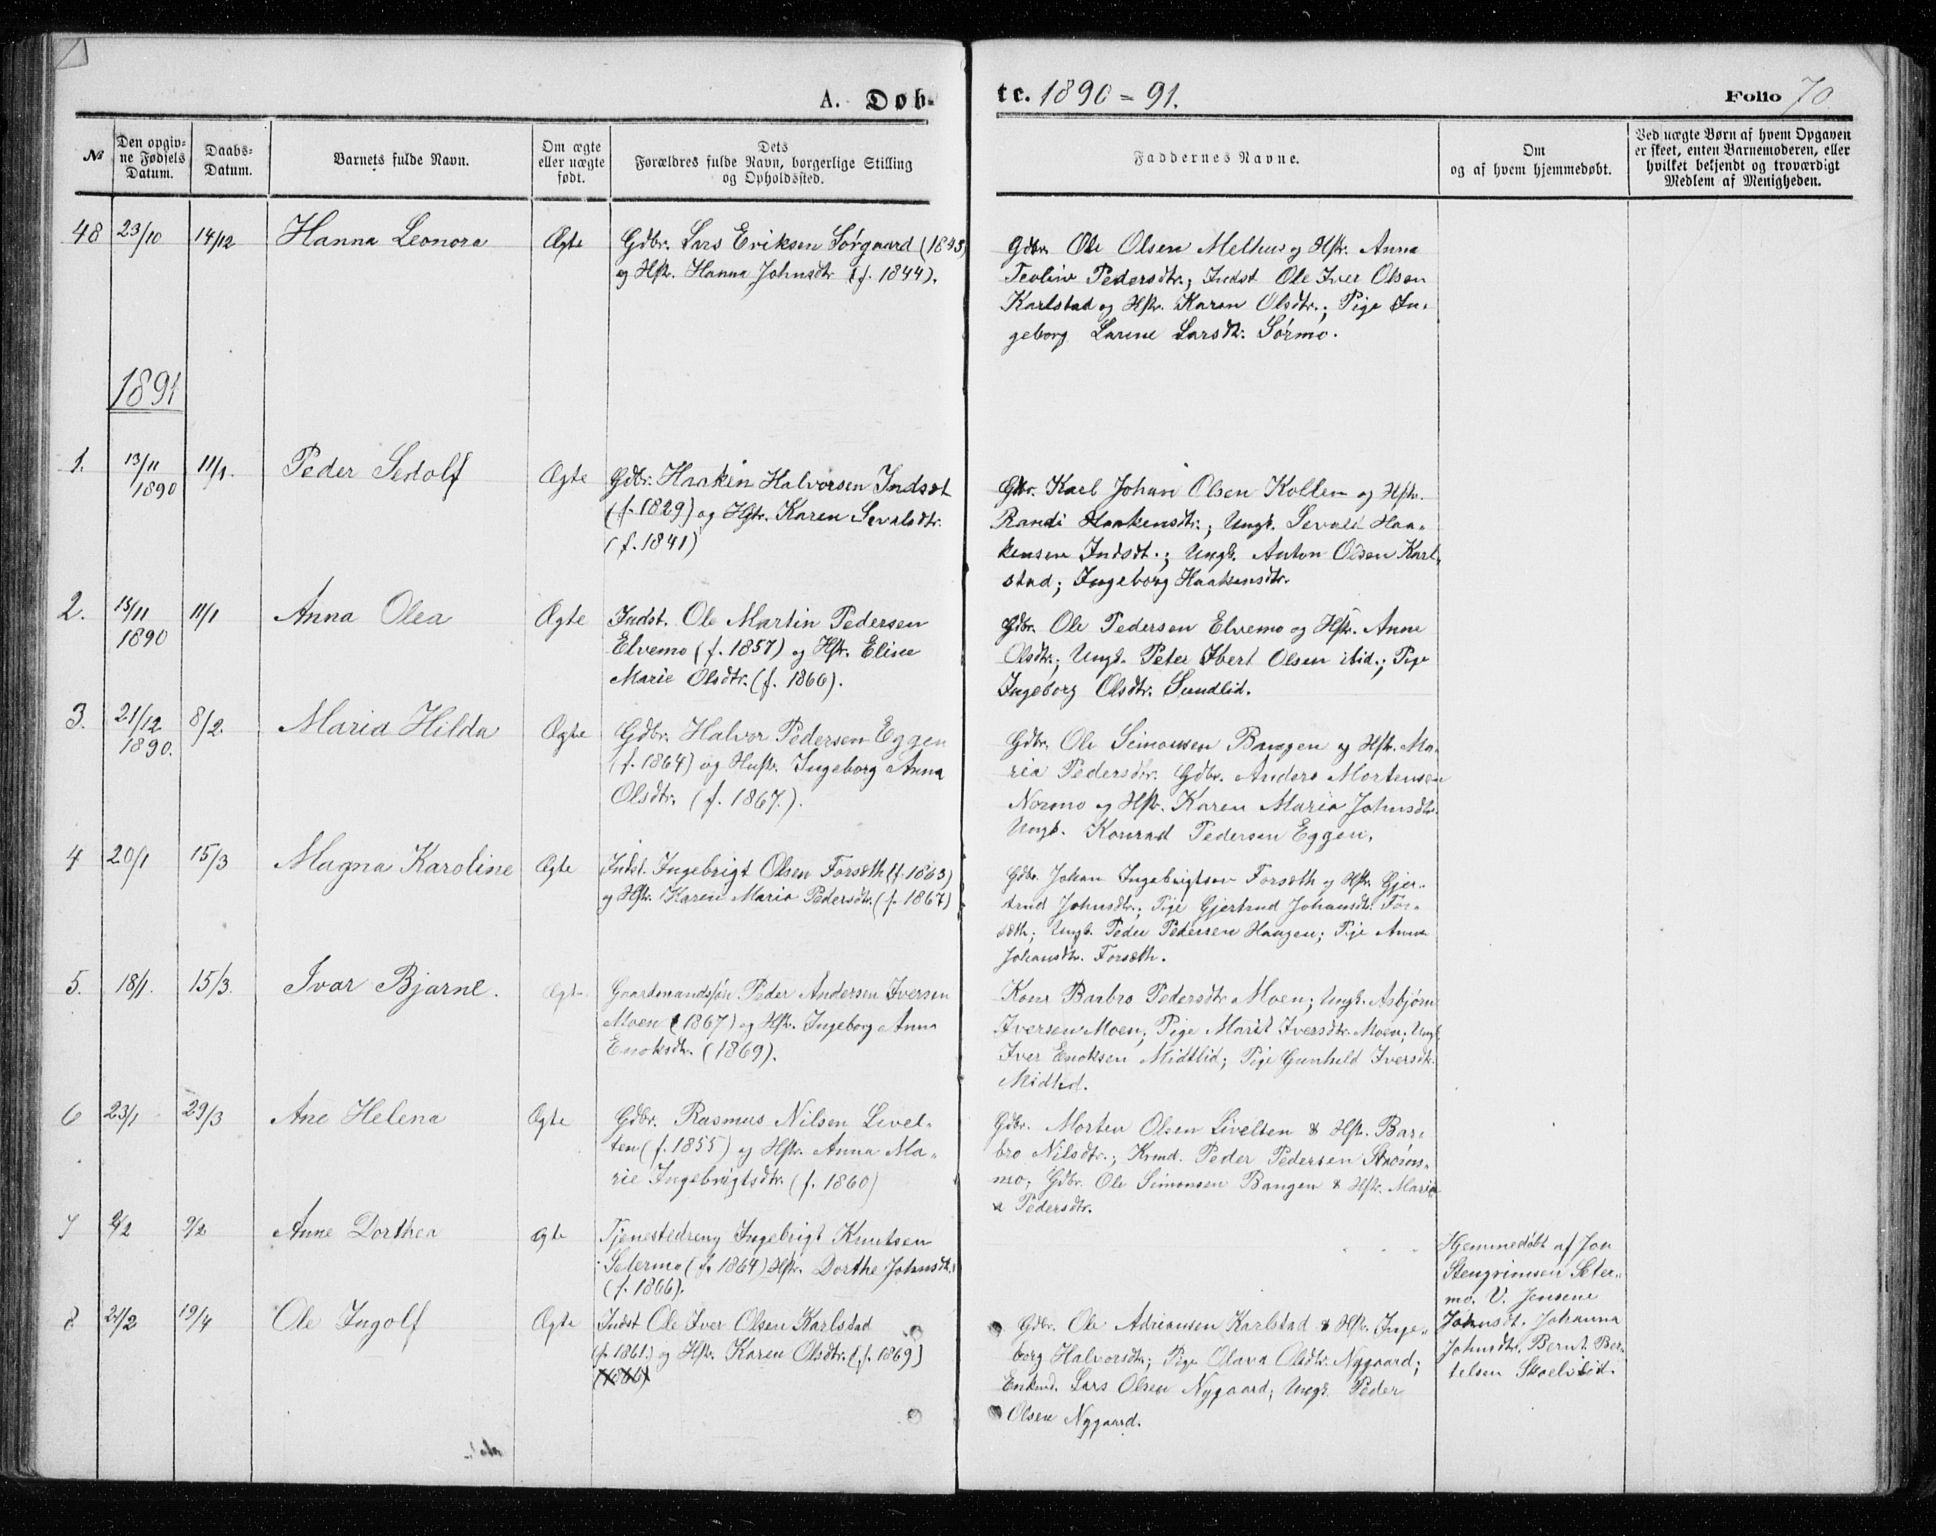 A. Døb-
te. 1890-91.
Folio 70
№
Den opgiv-
ne Fødsels
Datum.
Daabs-
Datum.
Barnets fulde Navn.
Om ægte
eller uægte
født.
Dets
Forældres fulde Navn, borgerlige Stilling
og Opholdssted.
Faddernes Navne.
Om
og af hvem hjemmedøbt.
Ved uægte Børn af hvem Opgaven
er skeet, enten Barnemoderen, eller
hvilket bekjendt og troværdigt
Medlem af Menigheden.
48 23/10 14/12 Hanna Leonora Ægte
Gdbr. Lars Eriksen Sørgaard (1843)
og Hstr. Hanna Johnsdtr. (f. 1844).
Gdbr. Ole Olsen Melhus og Hstr. Anna
Teoline Pedersdtr.; Indst Ole Iver Olsen
Karlstad og Hstr. Karen Olsdtr.; Pige In-
geborg Larine Larsdtr. Sørmo.
1891
1. 13/11 1890 11/1. Peder Ægte
Gdbr. Haaken Halvorsen Indset
(f. 1829) og Hstr. Karen Sevalsdtr.
(f. 1841)
Gbr. Karl Johan Olsen Kollen og Hstr.
Randi Haakensdtr.; Ungk. Sevald Haa-
kensen Indset.; Ungk. Anton Olsen Karl-
stad; Ingeborg Haakensdtr.
2. 15/11 1890 11/1 Anna Olea Ægte
Indst. Ole Martin Pedersen
Elvemo (f. 1857) og Hstr. Eline
Marie Olsdtr. (f. 1866).
Gdbr. Ole Pedersen Elvemo og Hstr. Anne
Olsdtr.; Ungk. Peter Ibert Olsen ibid.; Pige
Ingeborg Olsdtr. Sundlid.
3. 21/12 1890. 8/2. Maria Hilda Ægte
Gdbr. Halvor Pedersen Eggen
(f. 1864) og Hustr. Ingeborg Anna
Olsdtr. (f. 1867.).
Gdbr. Ole Simonsen Bangen og Hstr. Ma-
ria Pedersdtr. Gdbr. Anders Mortensen
Normo og Hstr. Karen Maria Johnsdtr.
Ungk. Konrad Pedersen Eggen.
4 20/1 15/3 Magna Karoline Ægte
Indst. Ingebrigt Olsen Forsæth (f. 1863)
og Hstr. Karen Maria Pedersdtr. (f. 1867)
Gdbr. Johan Ingebrigtsen Forsæth og Hstr. Gjer-
trud Johnsdtr.; Pige Gjertrud Johansdtr. For-
sæth; Ungk. Peder Pedersen Haugen; Pige Anna
Johansdtr. Forsæth.
5. 18/1. 15/3. Ivar Bjarne. Ægte
Gaardmandssøn Peder Andersen Iversen
Moen (1867) og Hstr. Ingeborg Anna
Enoksdtr. (1869).
Kone Barbro Pedersdtr. Moen; Ungk. Asbjørn
Iversen Moen; Pige Marit Iversdtr. Moen; Ungk.
Iver Enoksen Midtlid; Pige Gunhild Iversdtr.
Midtlid.
6 23/1 29/3 Ane Helena Ægte
Gdbr. Rasmus Nilsen Livel-
ten (f. 1855) og Hstr. Anna Ma-
rie Ingebrigtsdtr. (f. 1860)
Gdbr. Morten Olsen Livelten & Hstr. Bar-
bro Nilsdtr.; Krmd. Peder Pedersen Strøms-
mo; Gdbr. Ole Simonsen Bangen & Hstr. Maria
Pedersdtr.
7 9/2 Anne Dorthea Ægte
Tjenestedreng Ingebrigt Knutsen
Setermo (f. 1864) Hstr. Dorthe Johnsdtr.
(f. 1866).
Hjemmedøbt af Jon
Stengrimsen Seter-
mo. V. Jensene
Johnsdt. Johanna
Johnsdtr. Bernt Ber-
telsen Skoelvlid.
8 21/2 19/4 Ole Ingolf Ægte
Indst Ole Iver Olsen Karlstad
(f. 1861) og Hstr. Karen Olsdtr. (f. 1869)
Gdbr. Ole Adriansen Karlstad & Hstr. Inge-
borg Halvorsdtr; Pige Olava Olsdtr. Nygaard;
Enkmd. Lars Olsen Nygaard; Ungk. Peder
Olsen Nygaard.